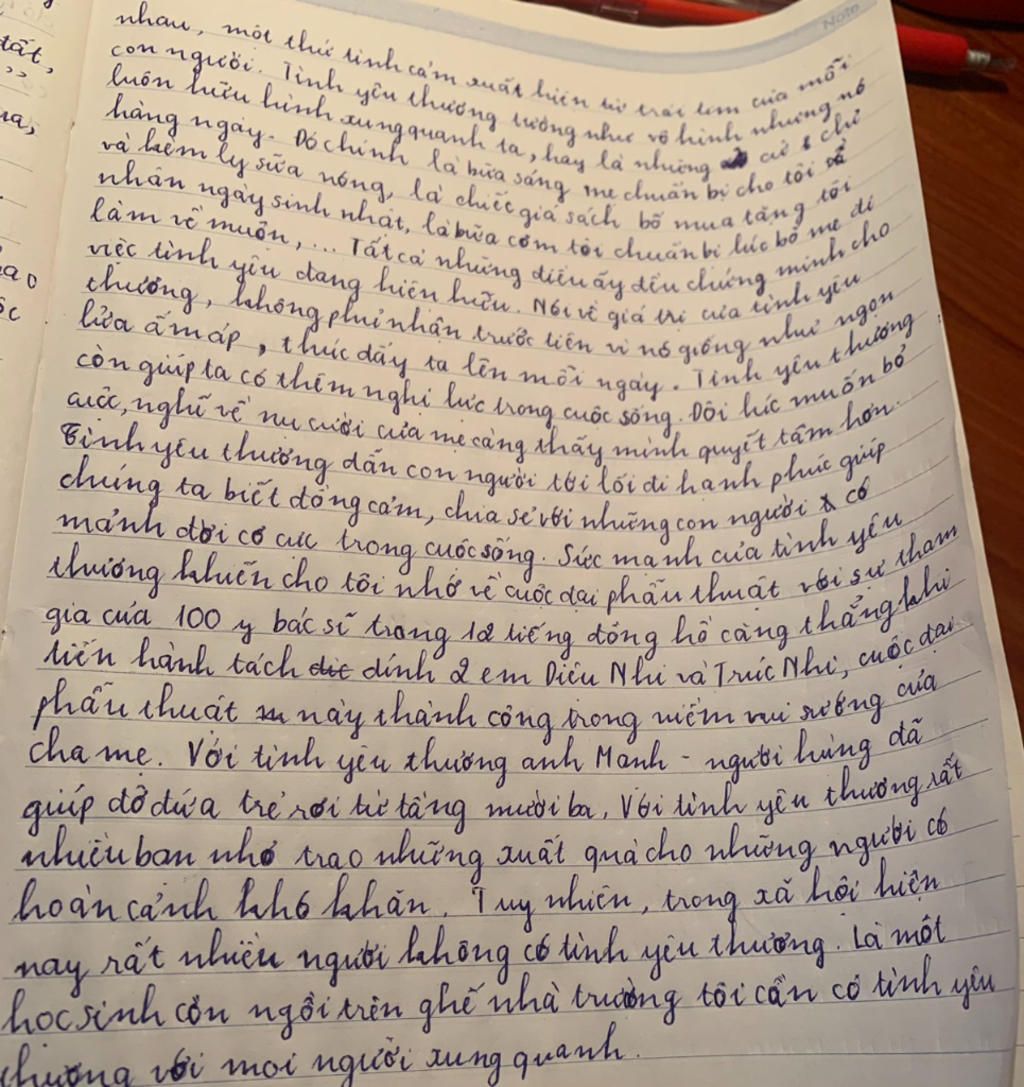 Note
nhau, một thứ tình cảm xuất hiện từ trái tim của mỗi
con người. Tình yêu thương tưởng như vô hình nhưng nó
luôn hữu hình xung quanh ta, hay là những cử chỉ
hàng ngày. Đó chính là bữa sáng mẹ chuẩn bị cho tôi
và kèm ly sữa nóng, là chiếc giá sách bố mua tặng tôi
nhân ngày sinh nhật, là bữa cơm tôi chuẩn bị lúc bố mẹ đi
làm về muộn,... Tất cả những điều ấy đều chứng minh cho
việc tình yêu đang hiện hữu. Nói về giá trị của tình yêu
thương, không phủ nhận trước tiên vì nó giống như ngọn
lửa ấm áp, thúc đẩy ta lên mỗi ngày. Tình yêu thương
còn giúp ta có thêm nghị lực trong cuộc sống. Đôi lúc muốn bỏ
cuộc, nghĩ về nụ cười của mẹ càng thấy mình quyết tâm hơn.
Tình yêu thương dẫn con người tới lối đi hạnh phúc giúp
chúng ta biết đồng cảm, chia sẻ với những con người có
mảnh đời cơ cực trong cuộc sống. Sức mạnh của tình yêu
thương khiến cho tôi nhớ về cuộc đại phẫu thuật với sự tham
gia của 100 y bác sĩ trong 12 tiếng đồng hồ căng thẳng khi
tiến hành tách dính 2 em Diệu Nhi và Trúc Nhi, cuộc đại
phẫu thuật này thành công trong niềm vui sướng của
cha mẹ. Với tình yêu thương anh Mạnh - người hùng đã
giúp đỡ đứa trẻ rơi từ tầng mười ba, Với tình yêu thương rất
nhiều bạn nhỏ trao những xuất quà cho những người có
hoàn cảnh khó khăn. Tuy nhiên, trong xã hội hiện
nay rất nhiều người không có tình yêu thương. Là một
học sinh còn ngồi trên ghế nhà trường tôi cần có tình yêu
thương với mọi người xung quanh.